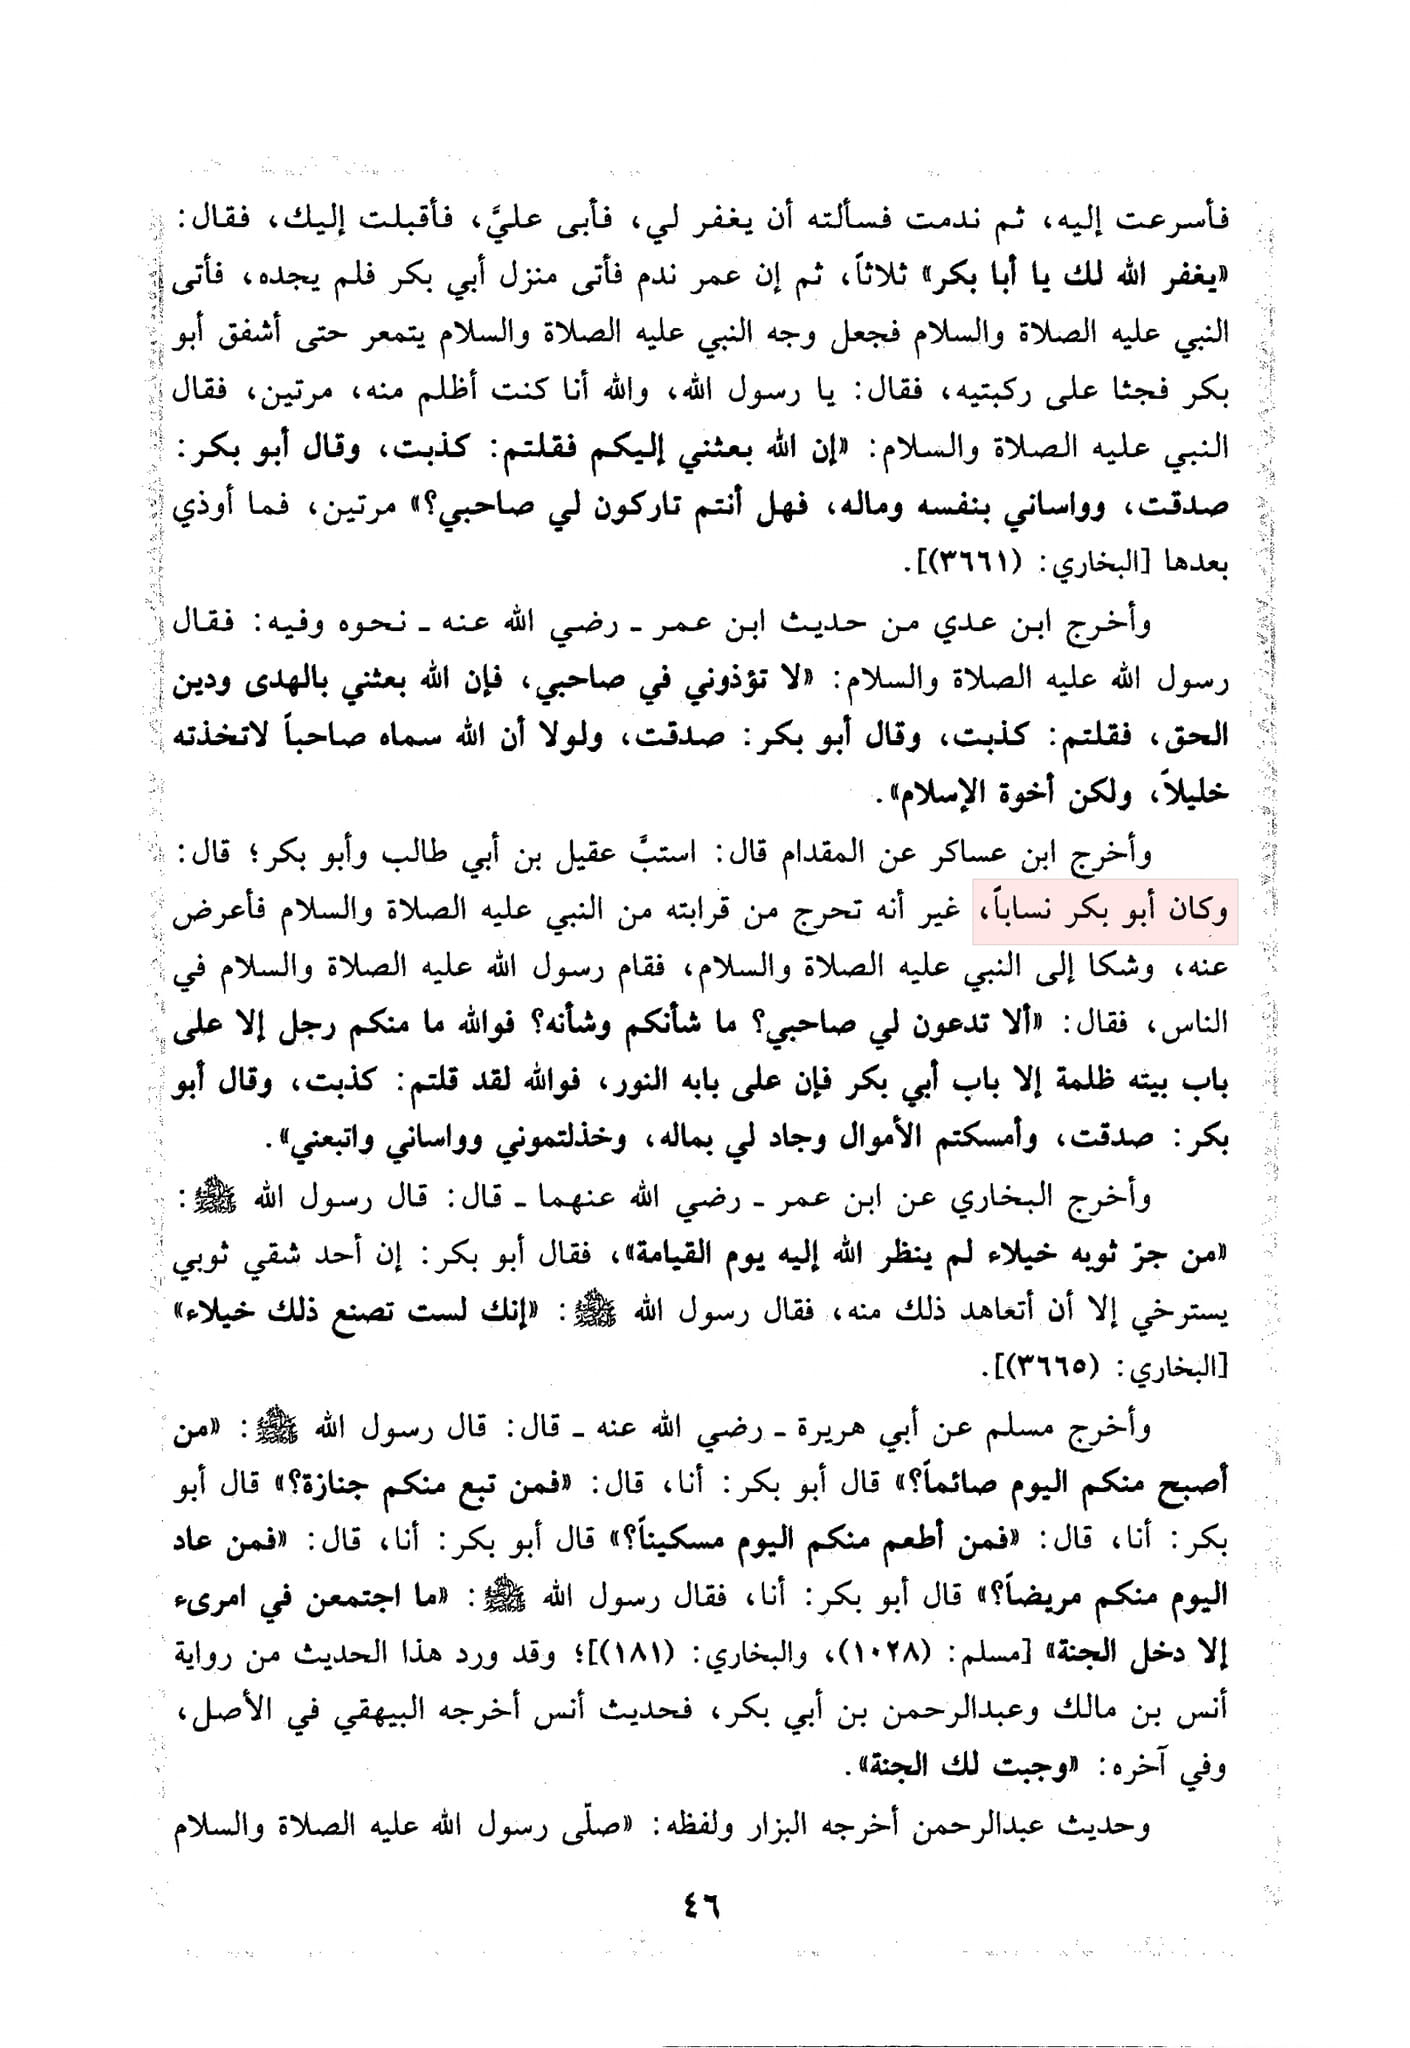 فأسرعت إليه، ثم ندمت فسألته أن يغفر لي، فأبى عليَّ، فأقبلت إليك، فقال:
«يغفر الله لك يا أبا بكر» ثلاثاً، ثم إن عمر ندم فأتى منزل أبي بكر فلم يجده، فأتى
النبي عليه الصلاة والسلام فجعل وجه النبي عليه الصلاة والسلام يتمعر حتى أشفق أبو
بكر فجثا على ركبتيه، فقال: يا رسول الله، والله أنا كنت أظلم منه، مرتين، فقال
النبي عليه الصلاة والسلام: «إن الله بعثني إليكم فقلتم: كذبت، وقال أبو بكر:
صدقت، وواساني بنفسه وماله، فهل أنتم تاركون لي صاحبي؟» مرتين، فما أوذي
بعدها [البخاري: (٣٦٦١)].
وأخرج ابن عدي من حديث ابن عمر ـ رضي الله عنه ـ نحوه وفيه: فقال
رسول الله عليه الصلاة والسلام: «لا تؤذوني في صاحبي، فإن الله بعثني بالهدى ودين
الحق، فقلتم: كذبت، وقال أبو بكر: صدقت، ولولا أن الله سماه صاحباً لاتخذته
خليلاً، ولكن أخوة الإسلام».
وأخرج ابن عساكر عن المقدام قال: استبَّ عقيل بن أبي طالب وأبو بكر؛ قال:
وكان أبو بكر نساباً، غير أنه تحرج من قرابته من النبي عليه الصلاة والسلام فأعرض
عنه، وشكا إلى النبي عليه الصلاة والسلام، فقام رسول الله عليه الصلاة والسلام في
الناس، فقال: «ألا تدعون لي صاحبي؟ ما شأنكم وشأنه؟ فوالله ما منكم رجل إلا على
باب بيته ظلمة إلا باب أبي بكر فإن على بابه النور، فوالله لقد قلتم: كذبت، وقال أبو
بكر: صدقت، وأمسكتم الأموال وجاد لي بماله، وخذلتموني وواساني واتبعني».
وأخرج البخاري عن ابن عمر ـ رضي الله عنهما ـ قال: قال رسول الله ﷺ:
«من جرّ ثوبه خيلاء لم ينظر الله إليه يوم القيامة»، فقال أبو بكر: إن أحد شقي ثوبي
يسترخي إلا أن أتعاهد ذلك منه، فقال رسول الله ﷺ: «إنك لست تصنع ذلك خيلاء»
[البخاري: (٣٦٦٥)].
وأخرج مسلم عن أبي هريرة ـ رضي الله عنه ـ قال: قال رسول الله ﷺ: «من
أصبح منكم اليوم صائماً؟» قال أبو بكر: أنا، قال: «فمن تبع منكم جنازة؟» قال أبو
بكر: أنا، قال: «فمن أطعم منكم اليوم مسكيناً؟» قال أبو بكر: أنا، قال: «فمن عاد
اليوم منكم مريضاً؟» قال أبو بكر: أنا، فقال رسول الله ﷺ: «ما اجتمعن في امرىء
إلا دخل الجنة» [مسلم: (١٠٢٨)، والبخاري: (١٨١)]؛ وقد ورد هذا الحديث من رواية
أنس بن مالك وعبدالرحمن بن أبي بكر، فحديث أنس أخرجه البيهقي في الأصل،
وفي آخره: «وجبت لك الجنة».
وحديث عبدالرحمن أخرجه البزار ولفظه: «صلّى رسول الله عليه الصلاة والسلام
٤٦